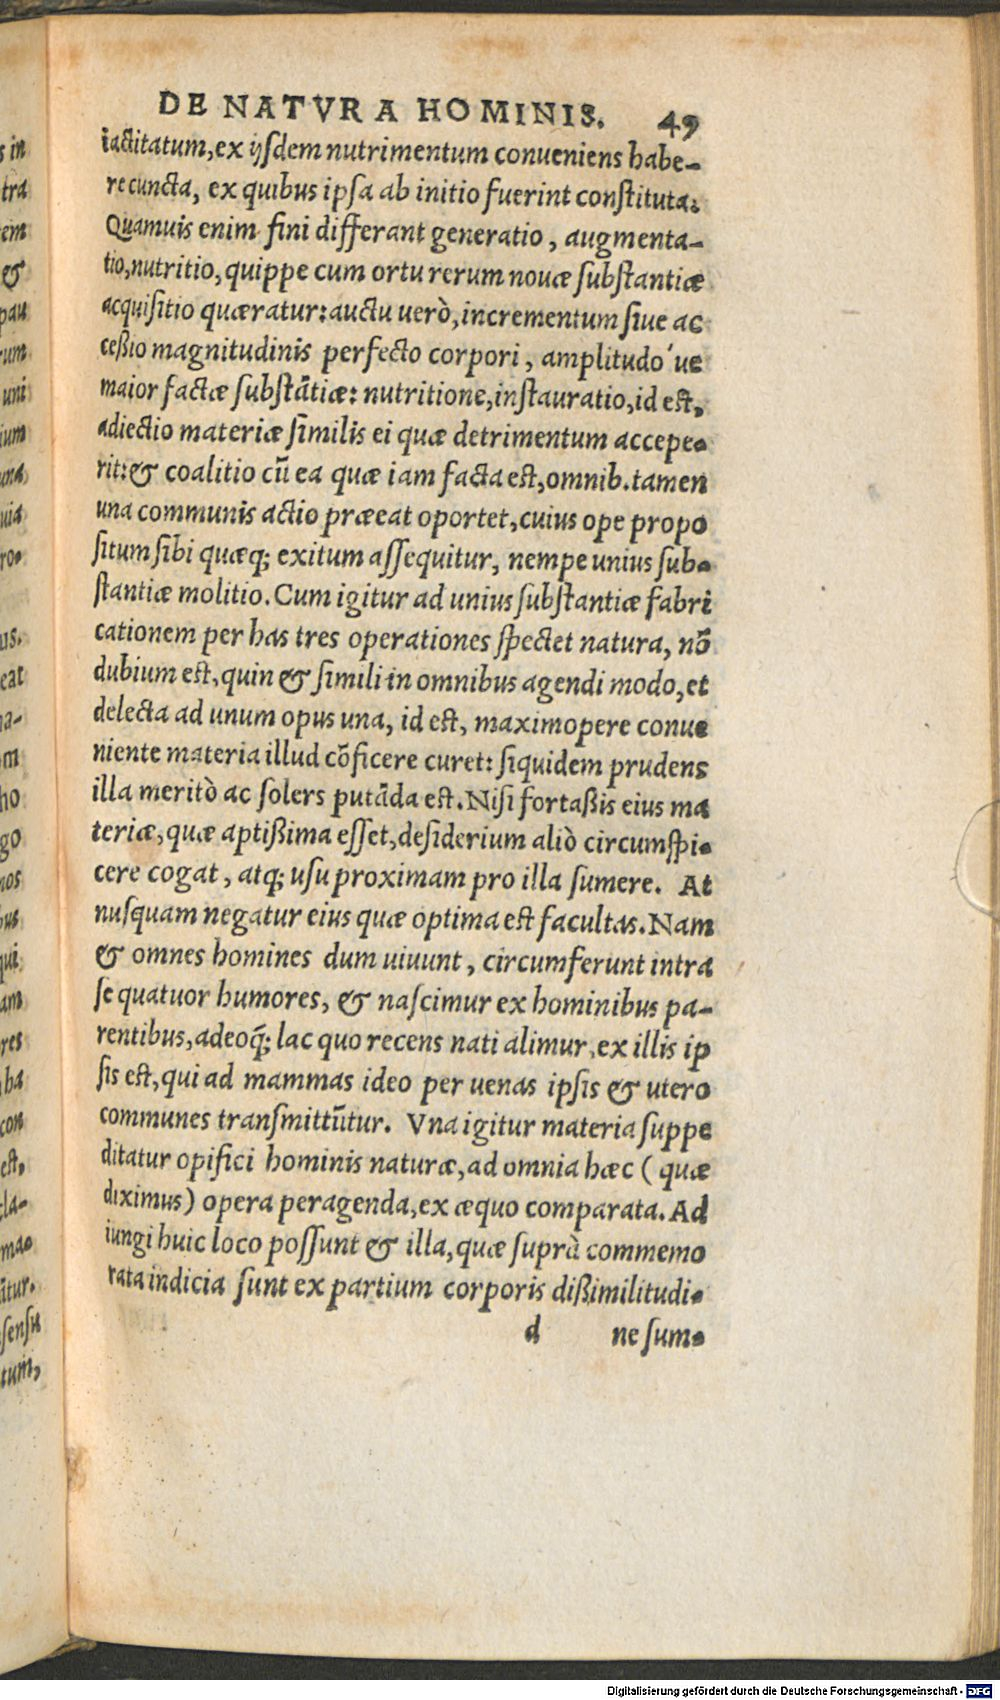 DE NATVRA HOMINIS. 49
iactitatum,ex ijsdem nutrimentum conueniens habe-
re cuncta, ex quibus ipsa ab initio fuerint constituta.
Quamuis enim fini differant generatio, augmenta-
tio,nutritio,quippe cum ortu rerum nouæ substantiæ
acquisitio quæratur:auctu uerò,incrementum siue ac
ceßio magnitudinis perfecto corpori, amplitudo´ue
maior factæ substãtiæ: nutritione,instauratio,id est,
adiectio materiæ similis ei quæ detrimentum accepe-
rit:& coalitio cũ ea quæ iam facta est,omnib.tamen
una communis actio præeat oportet,cuius ope propo
situm sibi quæq; exitum assequitur, nempe unius sub-
stantiæ molitio. Cum igitur ad unius substantiæ fabri
cationem per has tres operationes spectet natura, nõ
dubium est,quin & simili in omnibus agendi modo,et
delecta ad unum opus una, id est, maximopere conue
niente materia illud cõficere curet: siquidem prudens
illa meritò ac solers putãda est. Nisi fortaßis eius ma
teriæ,quæ aptißima esset,desiderium aliò circumspi-
cere cogat, atq; usu proximam pro illa sumere. At
nusquam negatur eius quæ optima est facultas. Nam
& omnes homines dum uiuunt, circumferunt intra
se quatuor humores, & nascimur ex hominibus pa-
rentibus,adeoq́; lac quo recens nati alimur,ex illis ip
sis est,qui ad mammas ideo per uenas ipsis & utero
communes transmittũtur. Vna igitur materia suppe
ditatur opifici hominis naturæ,ad omnia hæc ( quæ
diximus) opera peragenda,ex æquo comparata. Ad
iungi huic loco possunt & illa,quæ suprà commemo
rata indicia sunt ex partium corporis dißimilitudi-
d ne sum-
s in
tra
em
&
pau
rum
uni
ium
una
uia
ro-
us.
eat
na-
m
ho
go
nos
bus
qui
am
res
ha
con
est,
cla-
ma-
ãtur.
sensu
tum,
Digitalisierung gefördert durch die Deutsche Forschungsgemeinschaft - DFG